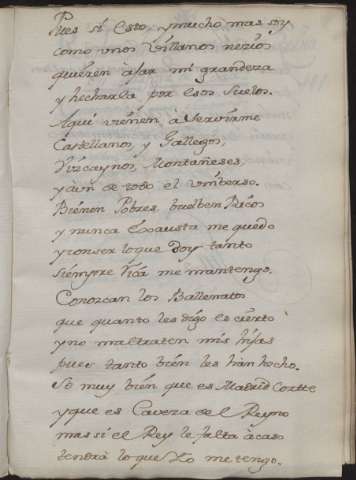 Pues si esto y mucho mas soy
como unos villanos nezios
quieren ajar mi grandeza
y hecharla por esos suelos.
Aqui vienen à servirme
Castellanos, y Gallegos,
Vizcaynos, Montañeses,
y aun de todo el universo.
Bienen Pobres buelben Ricos
y nunca exausta me quedo
y con ser lo que doy tanto
siempre rica me mantengo.
Conozcan los Ballenatos
que quanto les digo es cierto
y no maltraten mis hijas
pues tanto bien les han hecho.
Se muy bien que es Madrid Cortte
y que es Caveza del Reyno
mas si el Rey le falta àcaso
tendrà lo que Yo me tengo.